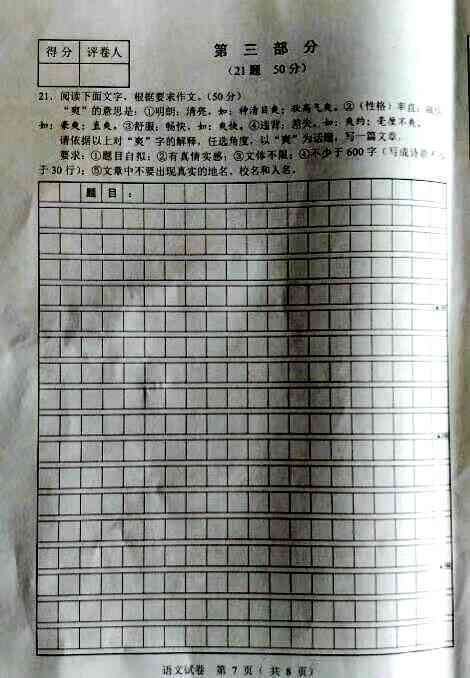 得分 评卷人
第三部分
(21题 50分)
21. 阅读下面文字, 根据要求作文。(50分)
“爽”的意思是: ①明朗; 清亮。如: 神清目爽; 秋高气爽。②(性格)率直;
如: 豪爽; 直爽。③舒服; 畅快。如: 爽快。④违背; 差失。如: 爽约; 毫厘不爽。
请依据以上对“爽”字的解释, 任选角度, 以“爽”为话题, 写一篇文章。
要求: ①题目自拟; ②有真情实感; ③文体不限; ④不少于600字(写成诗歌
于30行); ⑤文章中不要出现真实的地名、校名和人名。
题目:
语文试卷 第7页(共8页)